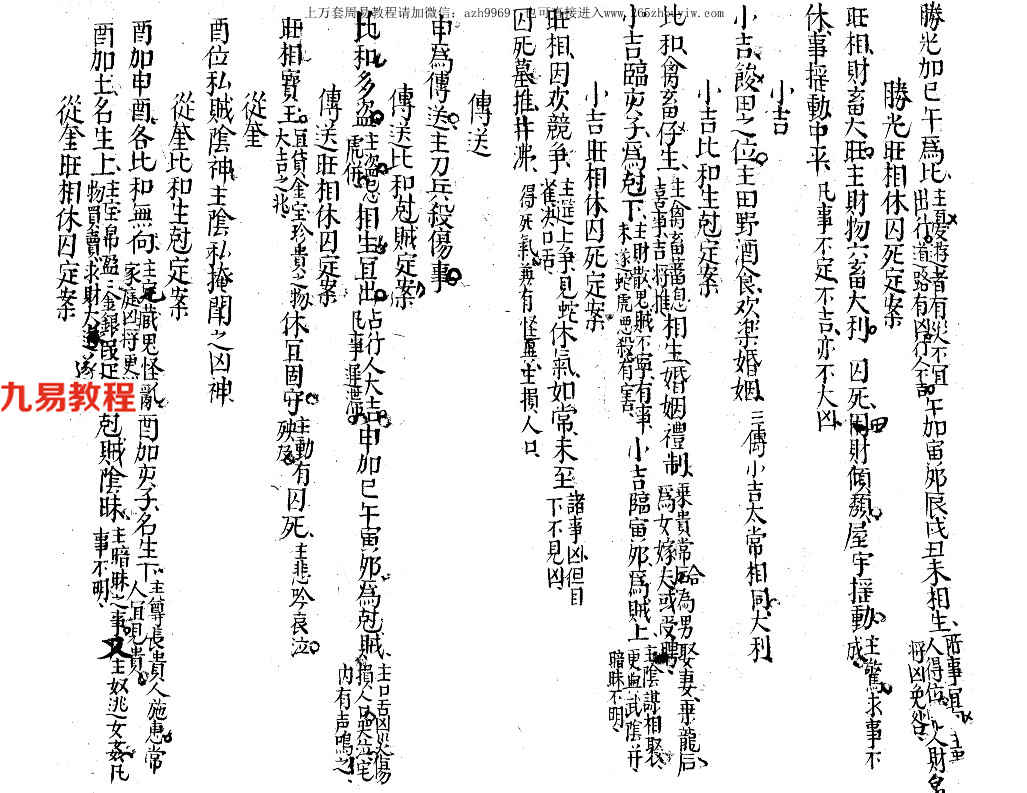 上万套周易教程请加微信：azh9969　也可直接进入www.265zhouyiw.com
勝光加巳午為比、出行道路有凶行人 午加寅夘辰戌丑未相生、
勝光旺相休囚死定案
旺相、財畜大旺主財物六畜大利、囚死、財傾頹屋宇搖動、主驚求事不成
休事搖動中平、凡事不定不吉亦不大凶
小吉
小吉、餕田之位主田野酒食、欢楽婚姻、三傳小吉太常相同大利
小吉比和生尅定案
比和、禽畜仔生、主禽畜蕃息喜事吉將推 相生、婚姻禮制、乗貴常為男娶妻乗龍后為女嫁夫或受聘
小吉臨亥子為尅下、主財散鬼賊不寧有事未遂蛇虎悪殺有害 小吉臨寅夘為賊上、主陰謀相娶、更與武陰並暗昧不明
小吉旺相休囚死定案
旺相、因欢競争、主筵上争見蛇雀為口舌、休氣如常未至、諸事凶但目下不見凶
囚死墓推井淋、得死氣兼有怪靈主損人口、
傳送
申為傳送、主刀兵殺傷事
傳送比和尅賊定案
比和多盜、主盜賊虎並、相生宜出、占行人大吉凡事遲滯 申加巳午寅夘為尅賊、主口舌凶災傷損人口哭泣宅内有声鳴之
傳送旺相休囚定案
旺相寶主、宜貸金宝珍貴之物大吉之兆、休宜固守、主動有殃及 囚死、主悲吟哀泣
從奎
酉位私賊陰神、主陰私掩閉之凶神
從奎比和生尅定案
酉加申酉各比和無向、主定藏鬼怪亂家庭凶將更 酉加亥子、名生下、主尊長貴人施惠常人宜見貴
酉加土名生上、主宝帛盈金銀 物買賣求財大遂 尅賊陰昧、主暗昧之事又主奴逃女姦凡事不明、
從奎旺相休囚定案
九易教程